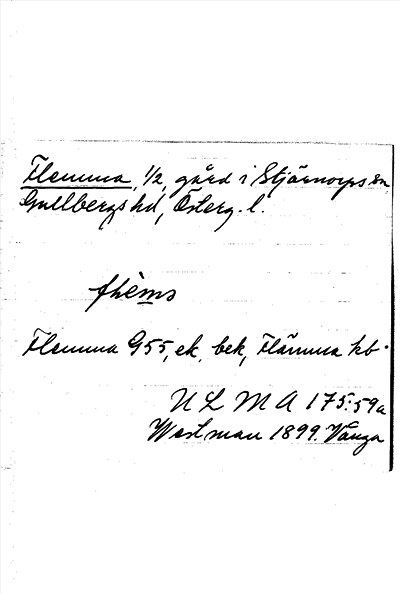 Flemma, 1/2, gård i Stjärnorps sn
Gullbergs hd, Österg. l.
flèms
Flemma G55, ek. bek, Flämma kb.
ULMA 175:59a
Westman 1899. Vånga